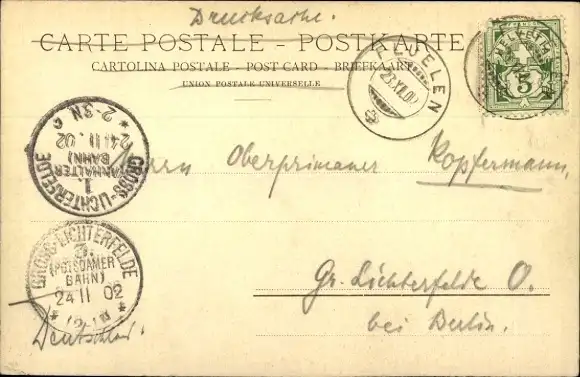 Drucksache.
CARTE POSTALE – POSTKARTE
CARTOLINA POSTALE - POST CARD - BRIEFKAART
UNION POSTALE UNIVERSELLE
FLUELEN
23.XI.02
HELVETIA
5
* 2-3N *
24.11.02
1.
(ANHALTER
BAHN)
GROSS-LICHTERFELDE
Herrn Oberprimaner Kopfermann,
GROSS-LICHTERFELDE
3.
(POTSDAMER
BAHN)
24 11 02
Gr. Lichterfelde O.
bei Berlin.
Deutschland.